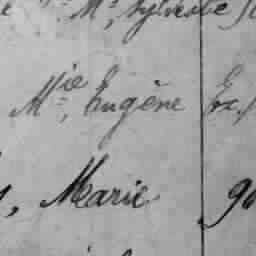 Mr, Sylvestre
Mie, Eugène Ex.
, Marie 90